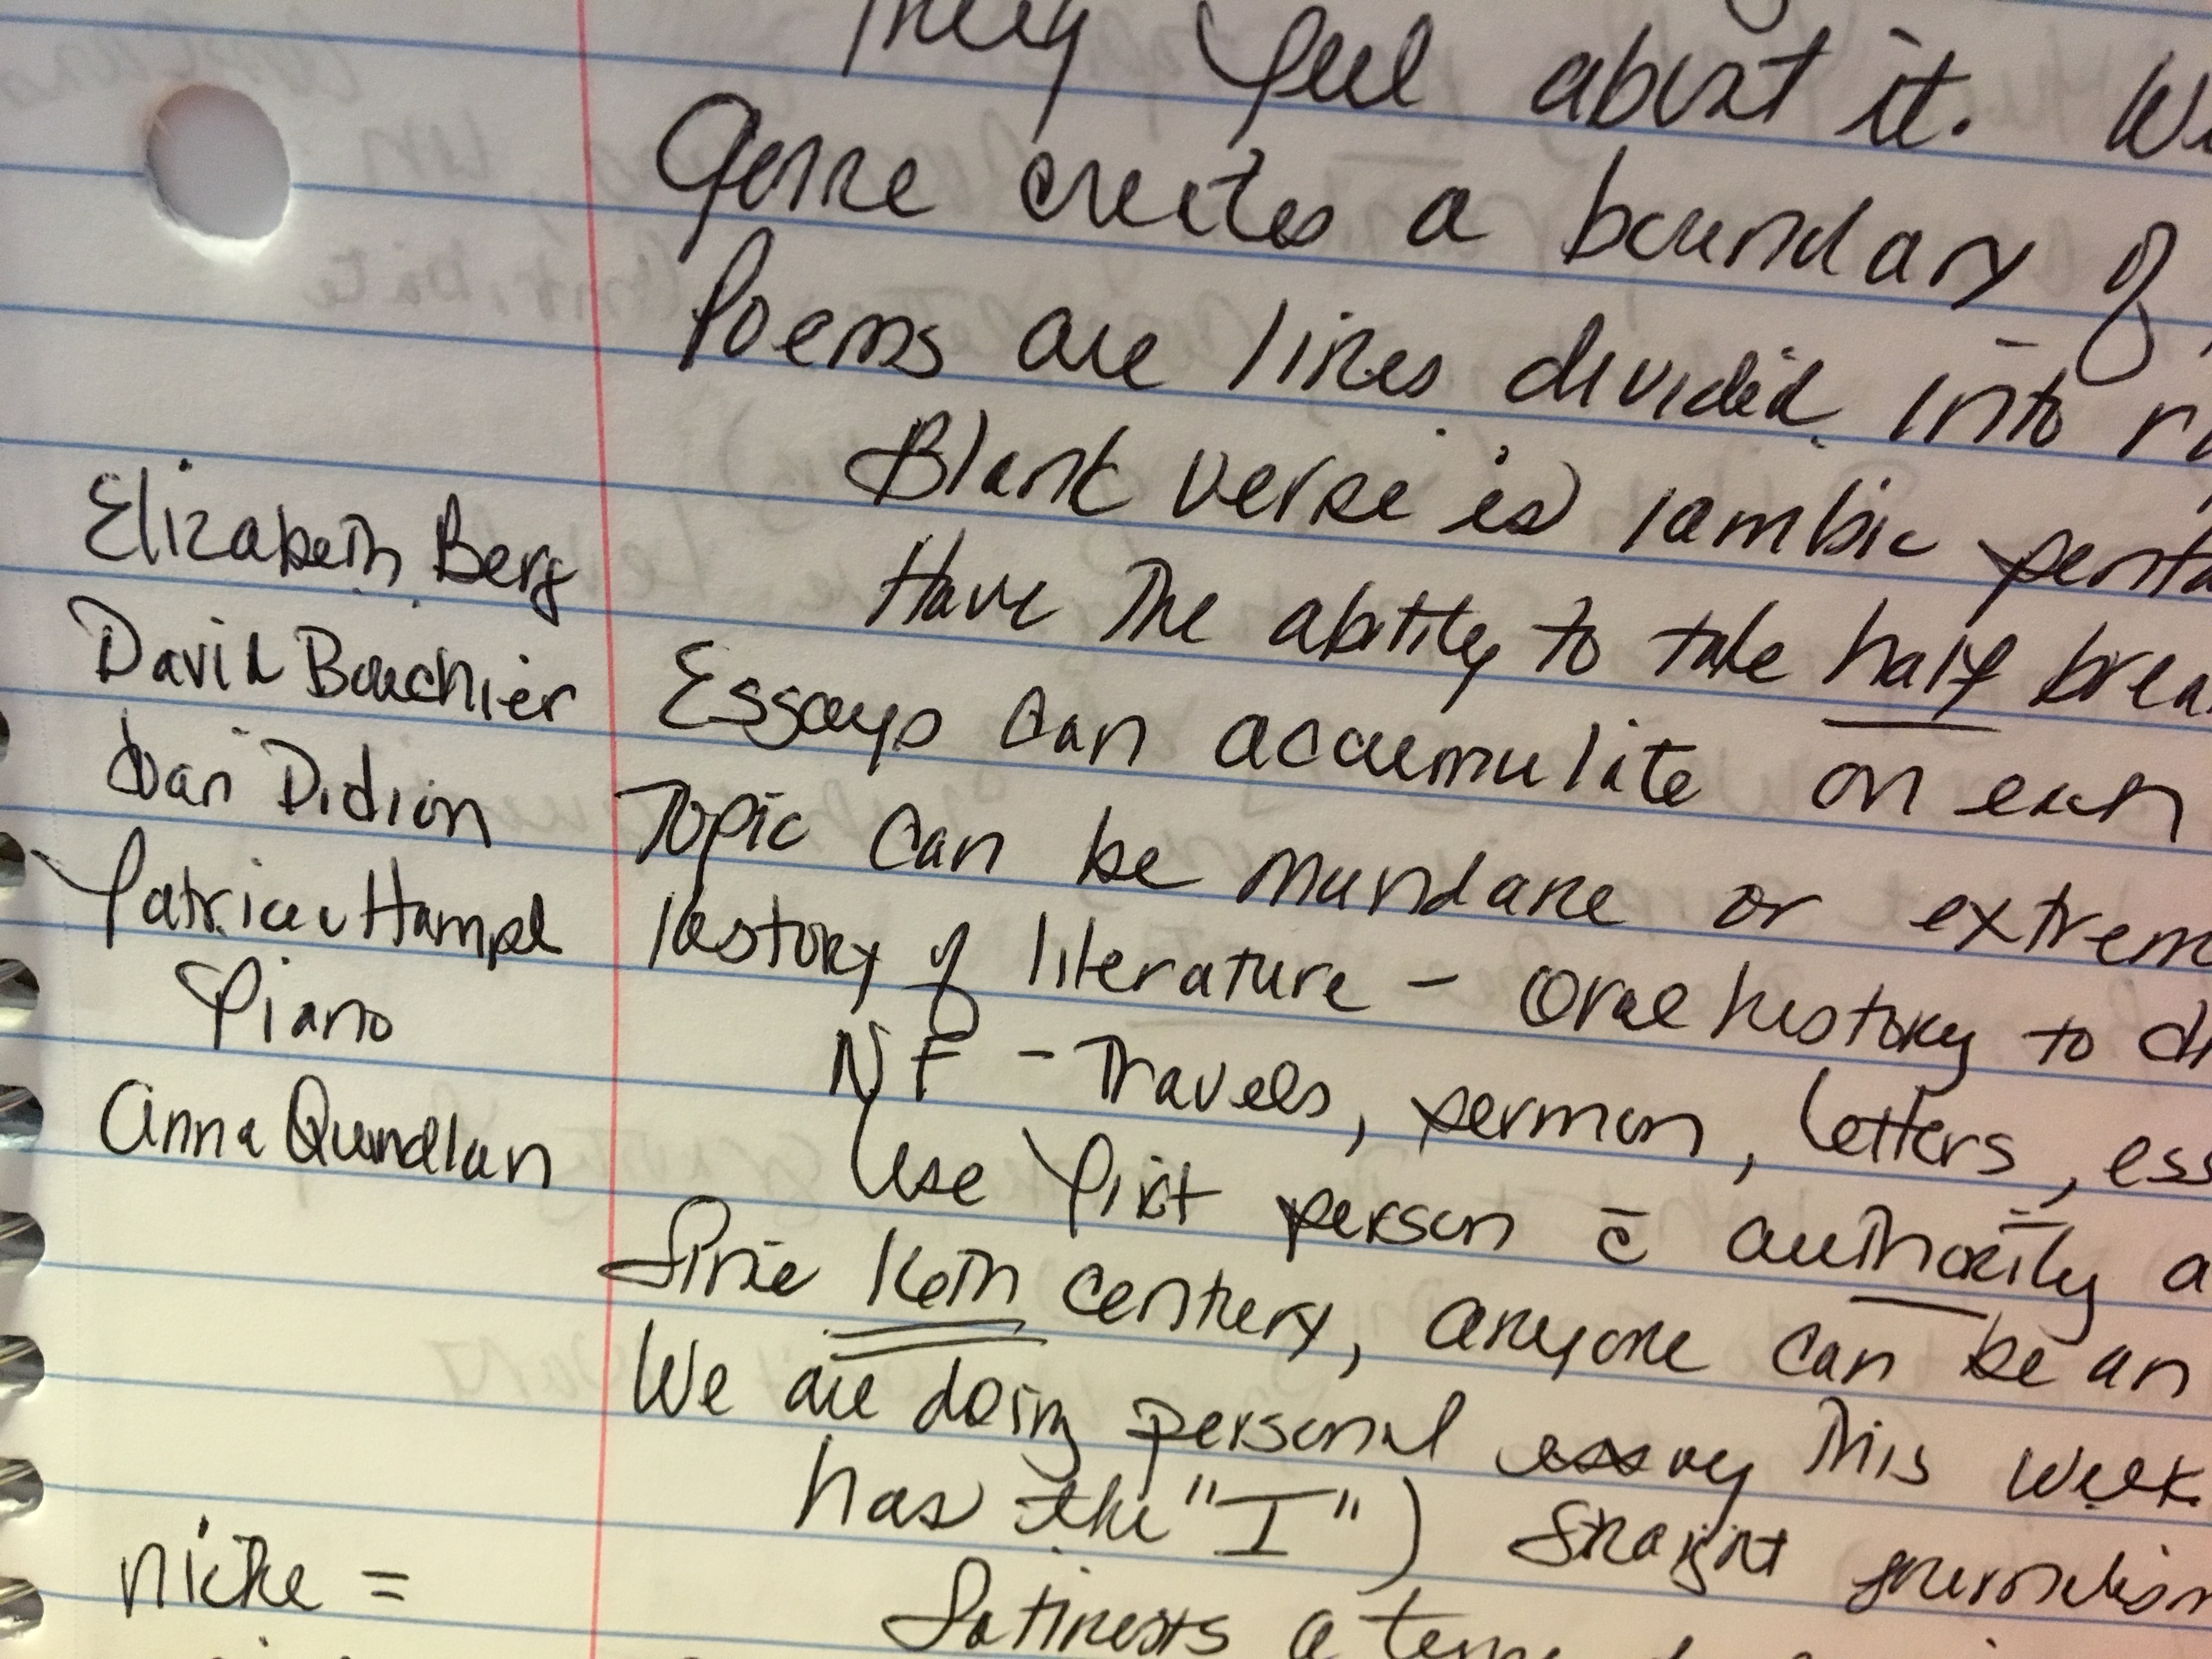 They feel about it. We
Genre creates a boundary of
Poems are lines divided into
Blank verse is iambic penta
Elizabeth Berg
Have the ability to take half brea
David Bouchier
Essays can accumulate on each
Joan Didion
Topic can be mundane or extrem
Patricia Hampl
History of literature - Oral history to
Piano
NF - Travels, sermon, letters, ess
Anna Qundlan
Use first person c̄ authority a
Since 16th century, anyone can be an
We are doing personal essay This week.
has the "I") Straight journalism
niche =
Satirests a